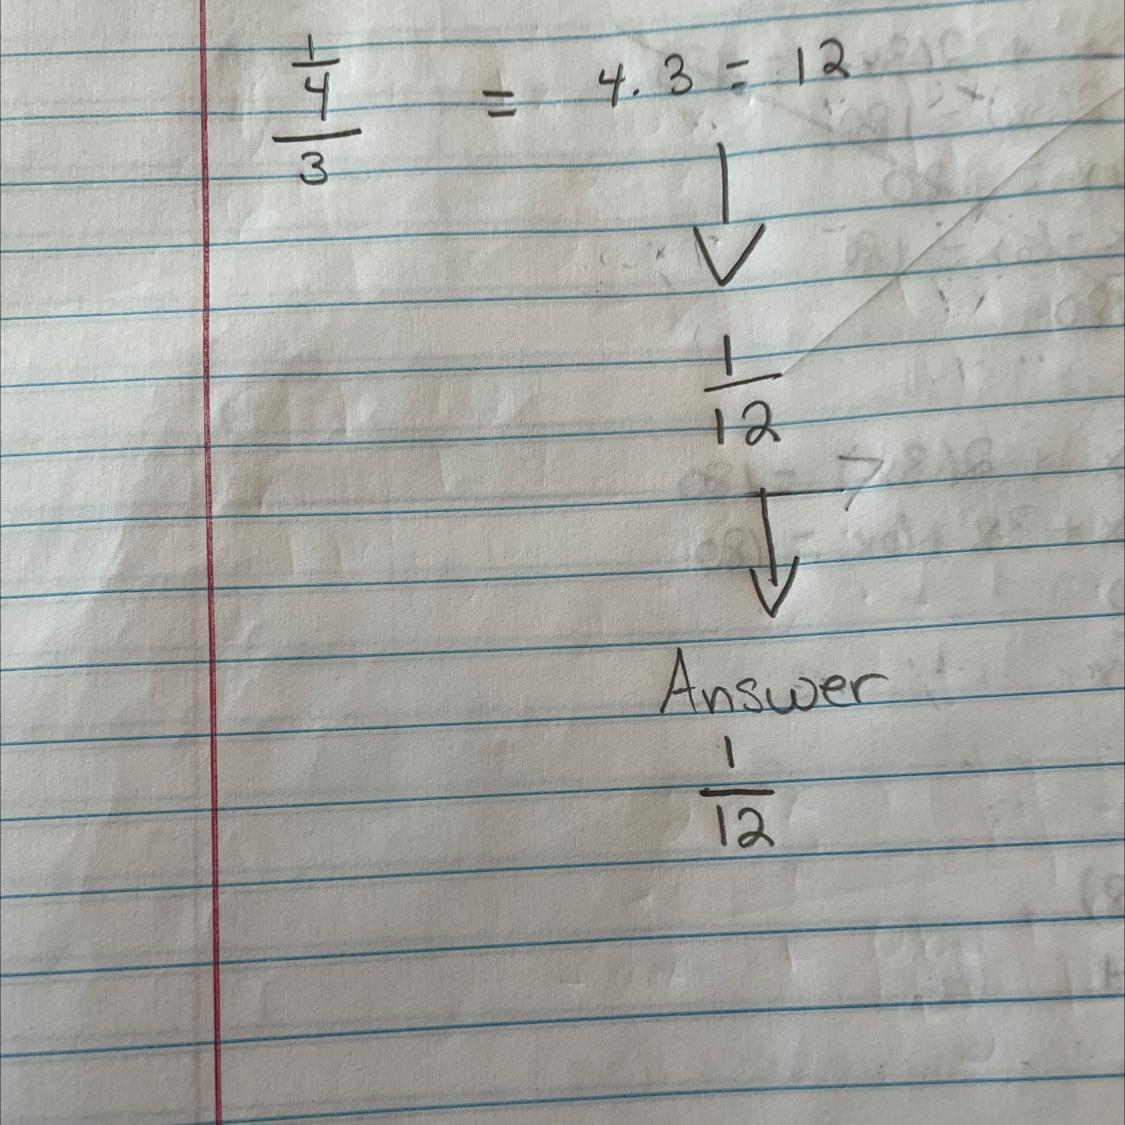 1/4/3 = 4 . 3 = 12
1/12
Answer
1/12